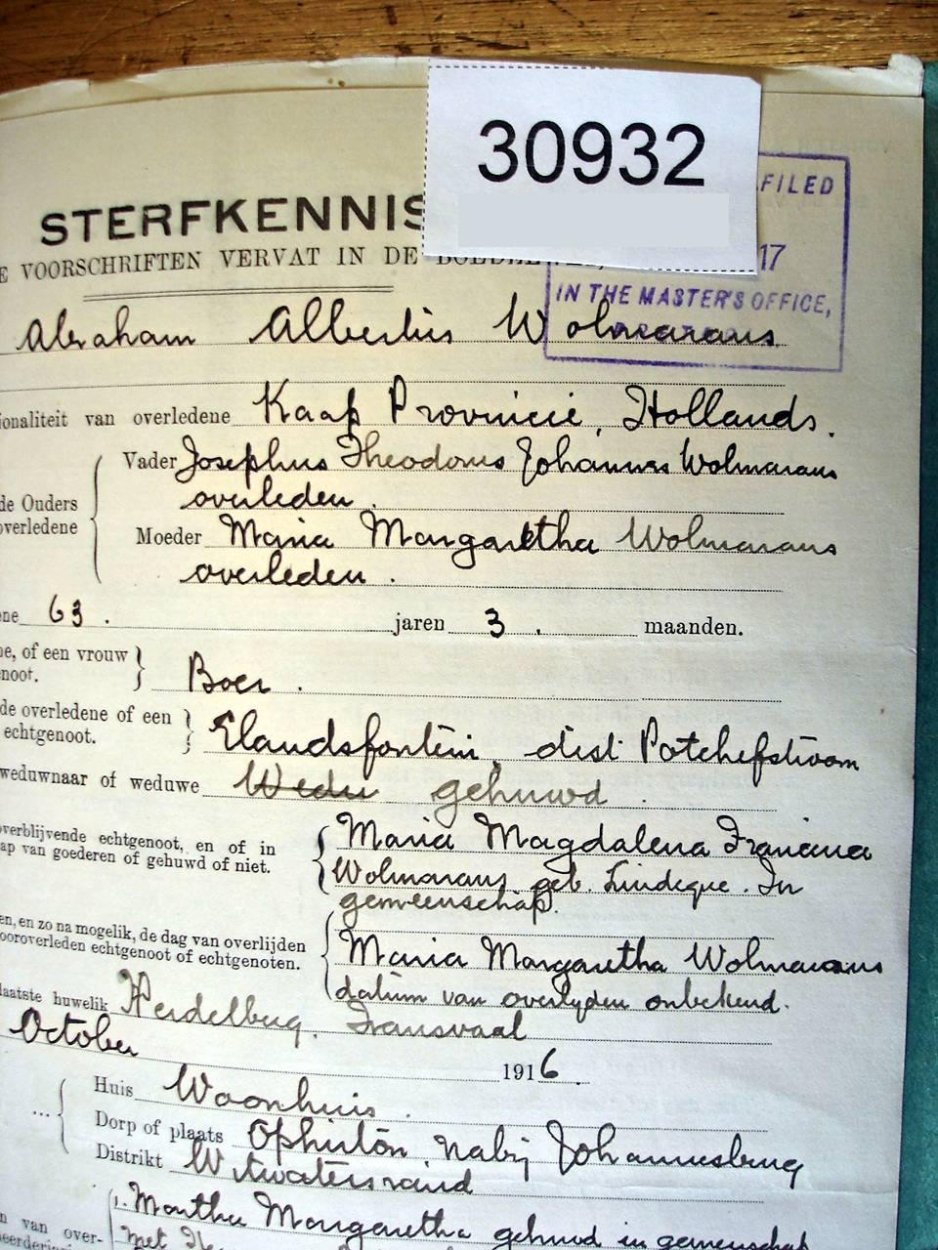 30932
FILED
STERFKENNIS
E VOORSCHRIFTEN VERVAT IN DE
17
IN THE MASTER'S OFFICE,
Abraham Albertus Wolmarans
ionaliteit van overledene Kaap Provincie, Hollands.
Vader Josephus Theodorus Johannes Wolmarans
de Ouders overleden.
overledene
Moeder Maria Margaretha Wolmarans
overleden.
ne 63. jaren 3. maanden.
ne, of een vrouw
noot. Boer.
de overledene of een
echtgenoot. Elandsfontein, dist Potchefstroom
weduwnaar of weduwe Wedu gehuwd.
verblijvende echtgenoot, en of in Maria Magdalena
ap van goederen of gehuwd of niet. Wolmarans geb. Lindeque. In
gemeenschap.
en, en zo na mogelik, de dag van overlijden
ooroverleden echtgenoot of echtgenoten. Maria Margaretha Wolmarans
datum van overlyden onbekend.
laatste huwelik Heidelberg. Transvaal
October 1916.
Huis Woonhuis.
... Dorp of plaats Ophirton, nabij Johannesburg
Distrikt Witwatersrand
1. Martha Margaretha gehuwd in gemeenschap
n van over- met
eerderj